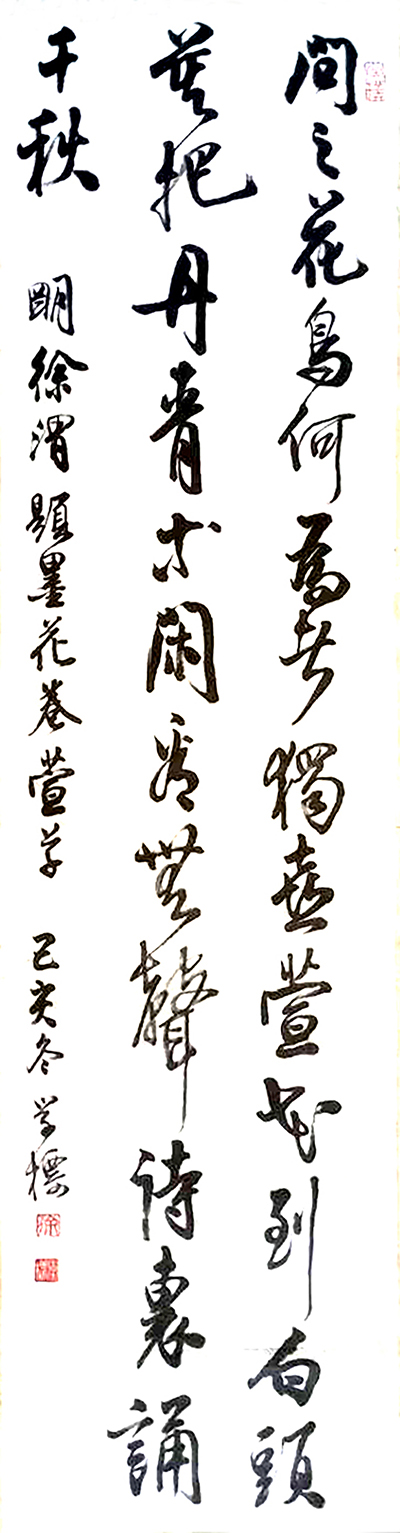 問之花鳥何為者獨喜萱花到白頭
莫把丹青等閑看無聲詩裏誦
千秋 明徐渭題墨花卷萱草 己亥冬 学標